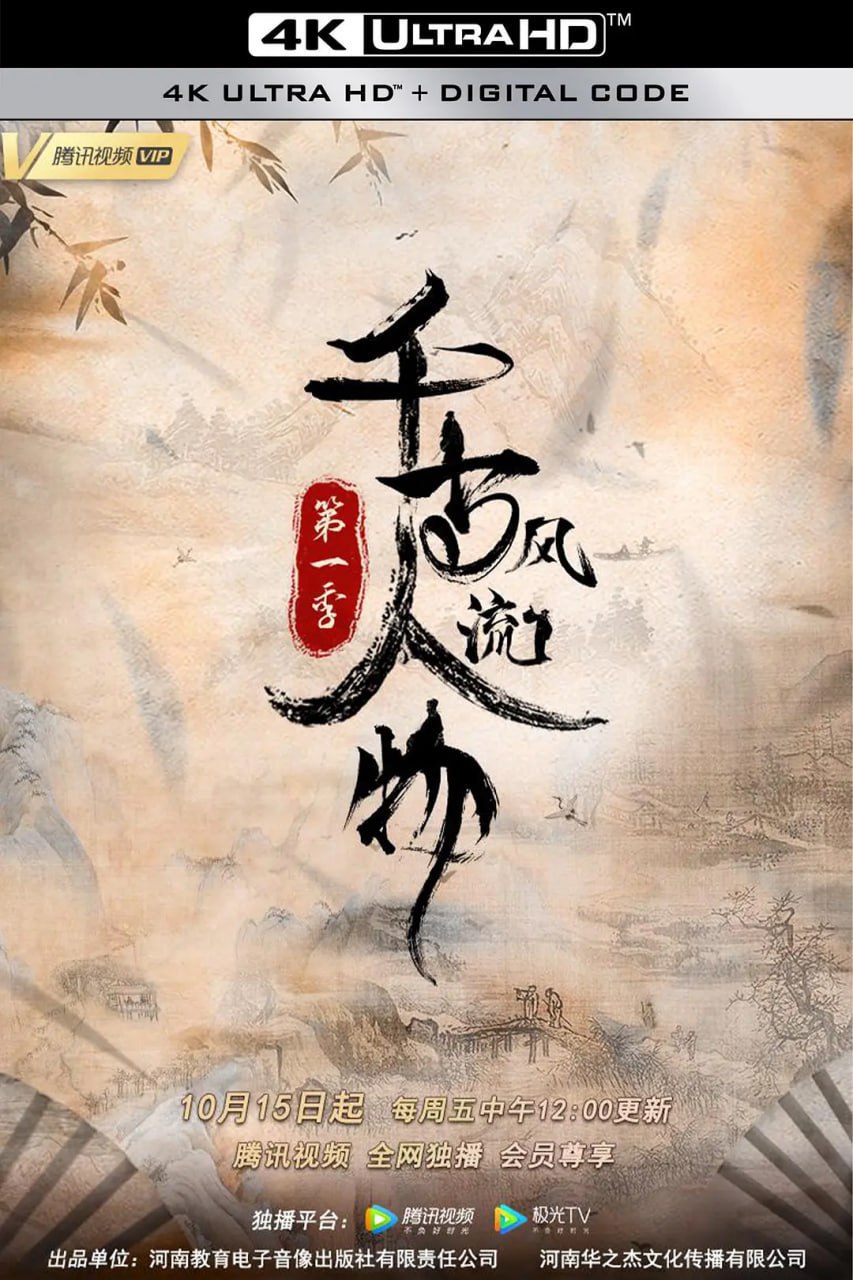 4K ULTRA HD™
4K ULTRA HD™ + DIGITAL CODE
腾讯视频 VIP
千古风流人物
第一季
10月15日起 每周五中午12:00更新
腾讯视频 全网独播 会员尊享
独播平台： 腾讯视频 不负好时光 极光TV 不负好时光
出品单位：河南教育电子音像出版社有限责任公司 河南华之杰文化传播有限公司